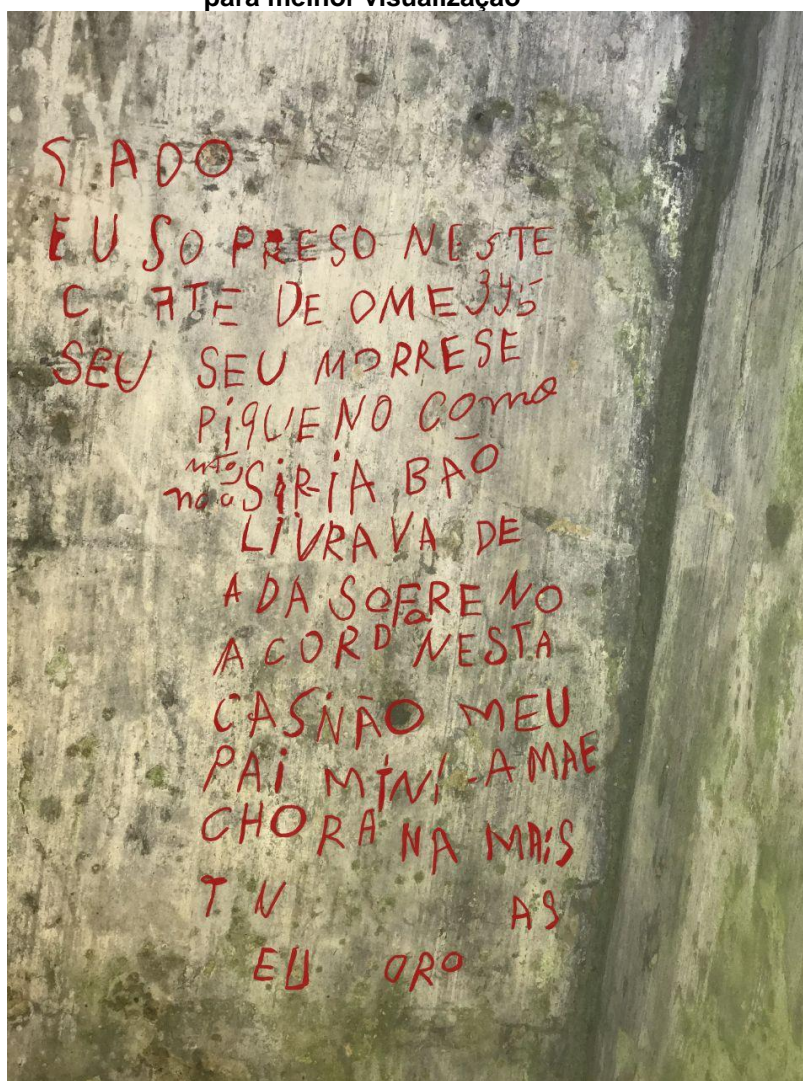 para melhor visualização
S ADO
EU SO PRESO NESTE
C ATE DE OME 395
SEU SEU MORRESE
PiQUENO COmo
não SiRiA BAO
LiVRAVA DE
ADA SOFRE NO
ACORD NESTA
CASiNÃO MEU
PAi MiNi-A MAE
CHORA NA MAiS
T N AS
EU ORO